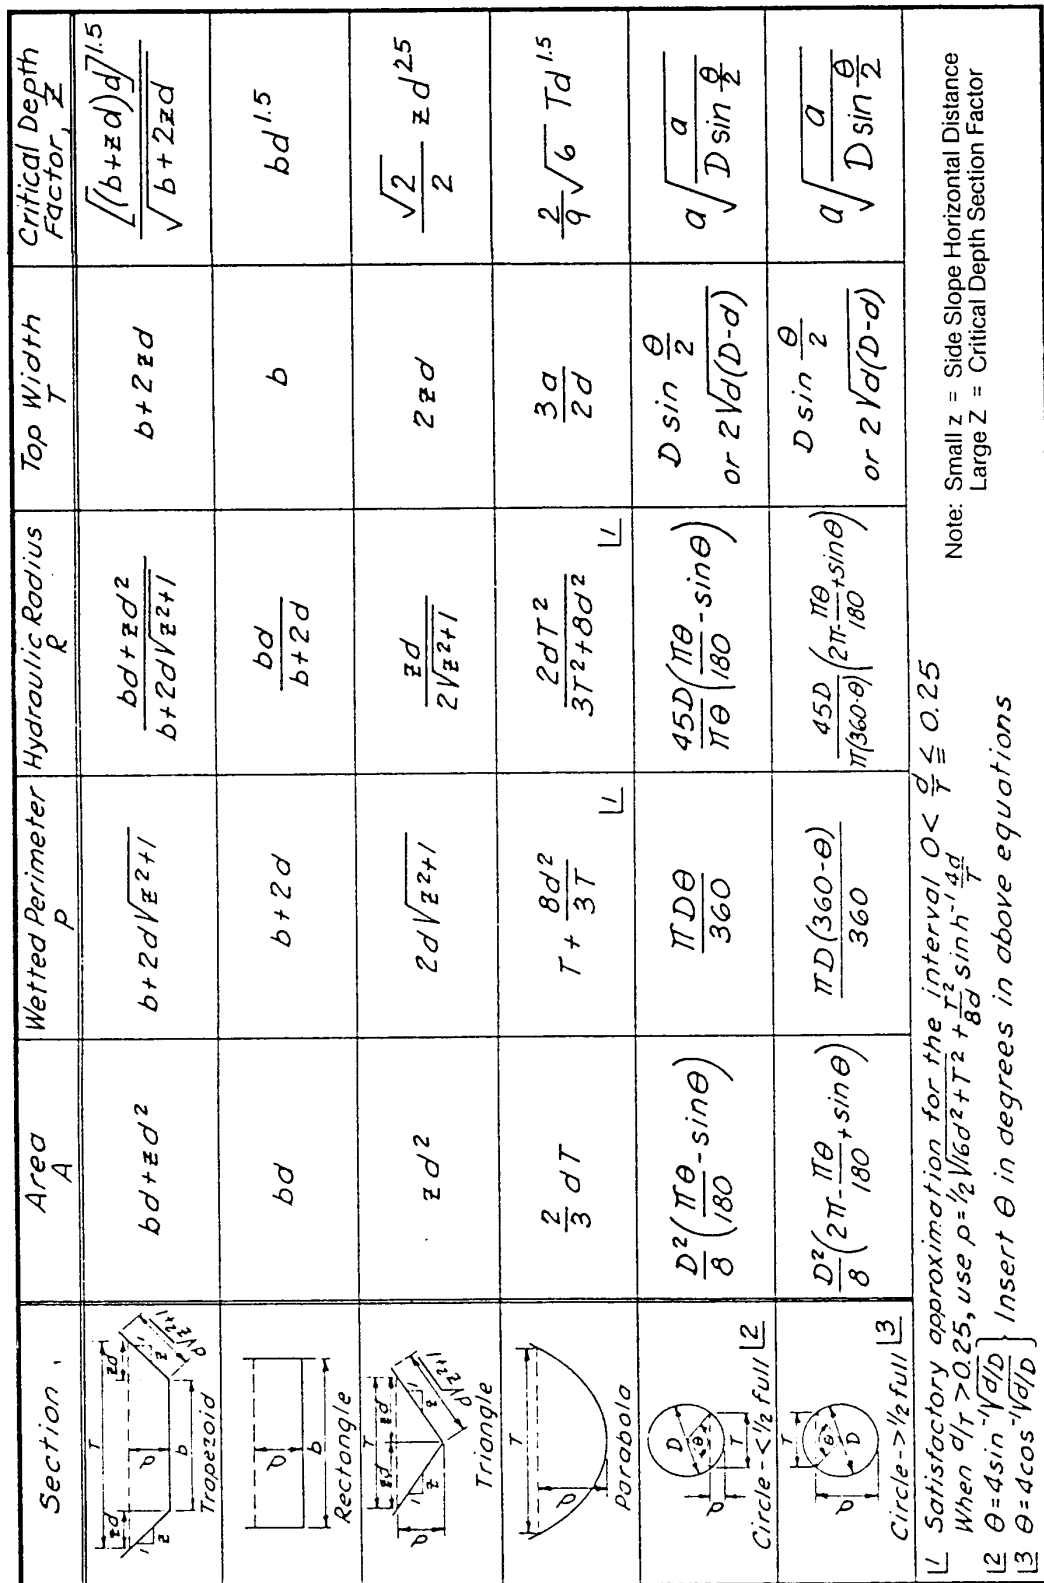 Section Area A Wetted Perimeter P Hydraulic Radius R Top Width T Critical Depth Factor, Z
T zd zd d 1 z b 1 z d√z²+1 Trapezoid bd+zd² b+2d√z²+1 (bd+zd²)/(b+2d√z²+1) b+2zd [(b+zd)d]^1.5/√b+2zd
d b Rectangle bd b+2d bd/(b+2d) b bd^1.5
T zd zd d 1 z 1 z d√z²+1 Triangle zd² 2d√z²+1 zd/(2√z²+1) 2zd √2/2 zd^2.5
T d Parabola 2/3 dT T + 8d²/3T ⌊1 2dT²/(3T²+8d²) ⌊1 3a/2d 2/9 √6 Td^1.5
D θ T d Circle-<1/2 full ⌊2 D²/8 (πθ/180 - sinθ) πDθ/360 45D/πθ (πθ/180 - sinθ) D sin θ/2 or 2√d(D-d) a√(a/(D sin θ/2))
T θ D d Circle->1/2 full ⌊3 D²/8 (2π - πθ/180 + sinθ) πD(360-θ)/360 45D/π(360-θ) (2π - πθ/180 + sinθ) D sin θ/2 or 2√d(D-d) a√(a/(D sin θ/2))
⌊1 Satisfactory approximation for the interval 0 < d/T ≦ 0.25
When d/T > 0.25, use p=1/2√16d²+T² + T²/8d sinh⁻¹ 4d/T
⌊2 θ=4sin⁻¹√d/D
⌊3 θ=4cos⁻¹√d/D } Insert θ in degrees in above equations
Note: Small z = Side Slope Horizontal Distance
Large Z = Critical Depth Section Factor